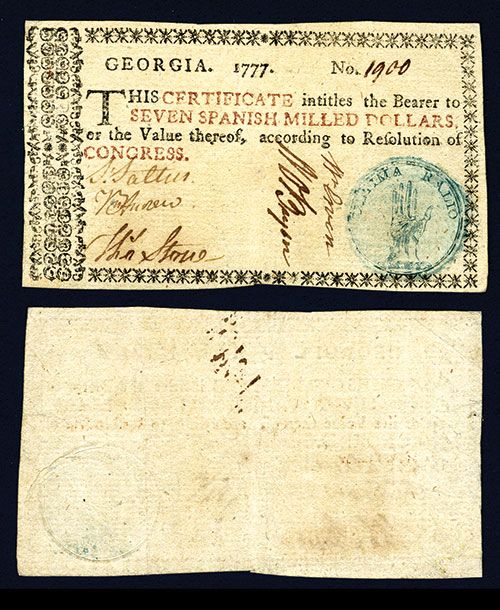 GEORGIA. 1777. No. 1900
THIS CERTIFICATE intitles the Bearer to
SEVEN SPANISH MILLED DOLLARS,
or the Value thereof, according to Resolution of
CONGRESS.
ULTIMA RATIO
Thos. Stone